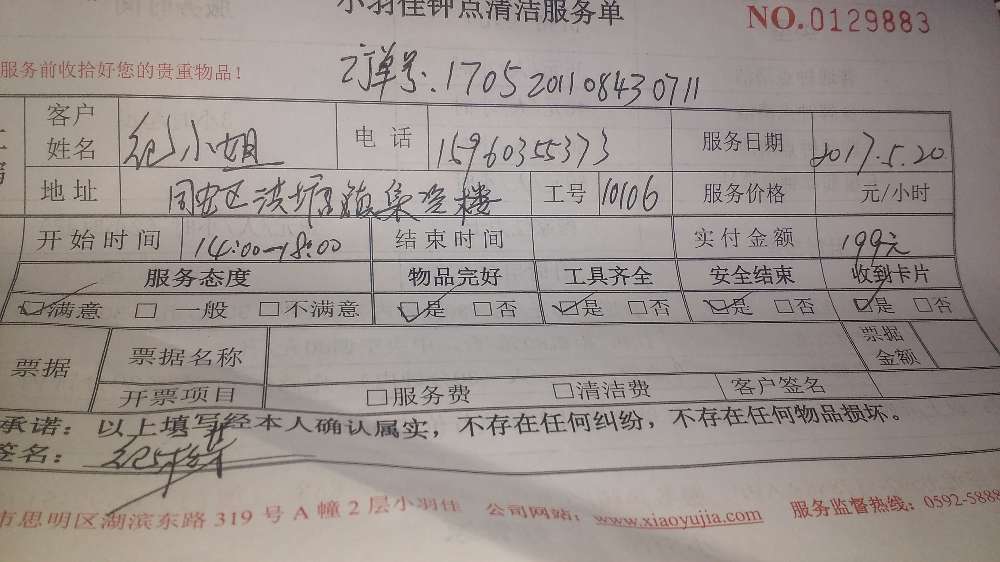 小羽佳钟点清洁服务单 NO.0129883
服务前收拾好您的贵重物品！ 订单号:170520110843 0711
客户姓名 纪小姐 电话 15960355373 服务日期 2017.5.20
地址 同安区洪塘镇集资楼 工号 10106 服务价格 元/小时
开始时间 14:00-18:00 结束时间 实付金额 199元
服务态度 物品完好 工具齐全 安全结束 收到卡片
☑满意 □一般 □不满意 ☑是 □否 ☑是 □否 ☑是 □否 ☑是 □否
票据 票据名称 票据金额
开票项目 □服务费 □清洁费 客户签名
承诺：以上填写经本人确认属实，不存在任何纠纷，不存在任何物品损坏。
签名：
市思明区湖滨东路 319 号 A 幢 2 层小羽佳 公司网站：www.xiaoyujia.com 服务监督热线：0592-5888